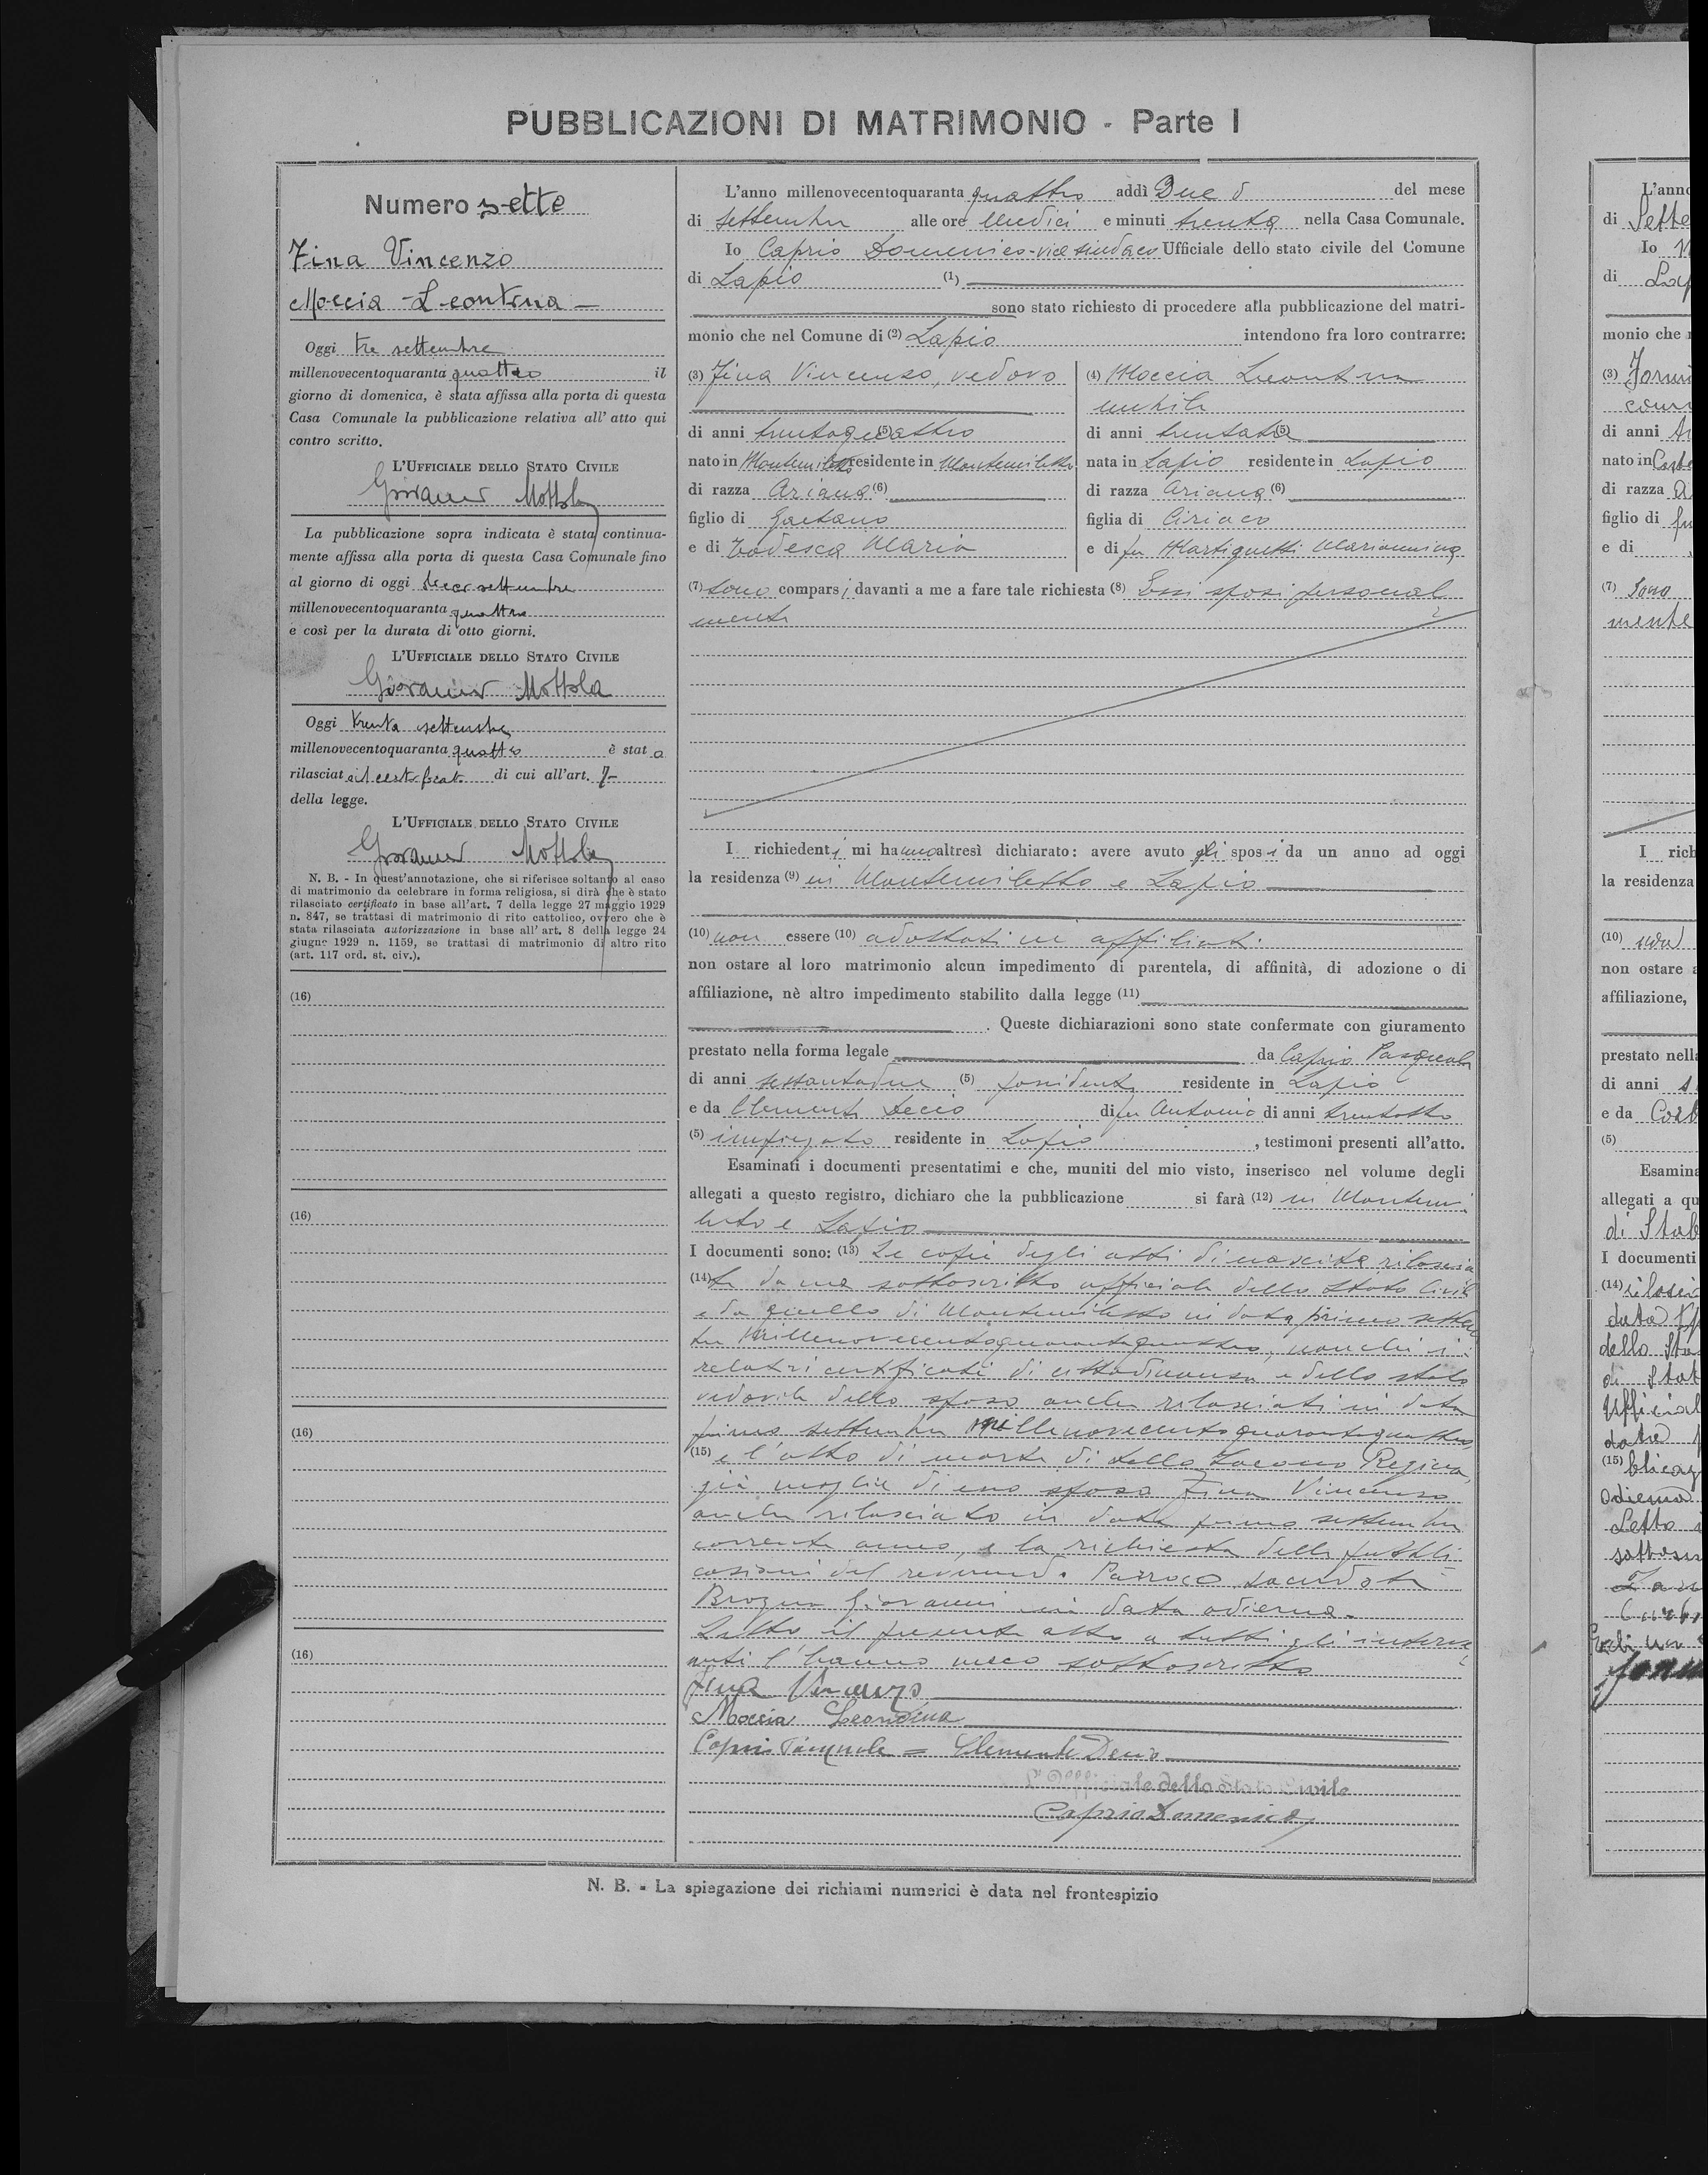 PUBBLICAZIONI DI MATRIMONIO - Parte I
Numero sette
Fina Vincenzo
Moccia Leontina
Oggi tre settembre
millenovecentoquaranta quattro il
giorno di domenica, è stata affissa alla porta di questa
Casa Comunale la pubblicazione relativa all' atto qui
contro scritto.
L'UFFICIALE DELLO STATO CIVILE
Giovanni Mottola
La pubblicazione sopra indicata è stata continua-
mente affissa alla porta di questa Casa Comunale fino
al giorno di oggi settembre
millenovecentoquaranta quattro
e così per la durata di otto giorni.
L'UFFICIALE DELLO STATO CIVILE
Giovanni Mottola
Oggi trenta settembre
millenovecentoquaranta quattro è stat o
rilasciat o il certificato di cui all'art. 7
della legge.
L'UFFICIALE DELLO STATO CIVILE
Giovanni Mottola
N. B. - In quest'annotazione, che si riferisce soltanto al caso
di matrimonio da celebrare in forma religiosa, si dirà che è stato
rilasciato certificato in base all'art. 7 della legge 27 maggio 1929
n. 847, se trattasi di matrimonio di rito cattolico, ovvero che è
stata rilasciata autorizzazione in base all' art. 8 della legge 24
giugno 1929 n. 1159, se trattasi di matrimonio di altro rito
(art. 117 ord. st. civ.).
(16)
(16)
(16)
(16)
L'anno millenovecentoquaranta quattro addì Due del mese
di settembre alle ore undici e minuti trenta nella Casa Comunale.
Io Caprio Domenico - vice sindaco Ufficiale dello stato civile del Comune
di Lapio (1)
sono stato richiesto di procedere alla pubblicazione del matri-
monio che nel Comune di (2) Lapio intendono fra loro contrarre:
(3) Fina Vincenzo, vedovo
di anni trentaquattro (5)
nato in Montemiletto residente in Montemiletto
di razza Ariana (6)
figlio di Gaetano
e di Todesca Maria
(4) Moccia Leontina
nubile
di anni (5)
nata in Lapio residente in Lapio
di razza Ariana (6)
figlia di Ciriaco
e di fu Martignetti Mariannina
(7) sono compars i davanti a me a fare tale richiesta (8) Essi sposi personal
mente
I richiedenti mi hanno altresì dichiarato: avere avuto gli sposi da un anno ad oggi
la residenza (9) in Montemiletto e Lapio
(10) non essere (10) adottati nè affiliati.
non ostare al loro matrimonio alcun impedimento di parentela, di affinità, di adozione o di
affiliazione, nè altro impedimento stabilito dalla legge (11)
. Queste dichiarazioni sono state confermate con giuramento
prestato nella forma legale da Caprio Pasquale
di anni sessantadue (5) possidente residente in Lapio
e da Clemente Decio di fu Antonio di anni trentotto
(5) impiegato residente in Lapio , testimoni presenti all'atto.
Esaminati i documenti presentatimi e che, muniti del mio visto, inserisco nel volume degli
allegati a questo registro, dichiaro che la pubblicazione si farà (12) in Montemi
letto e Lapio
I documenti sono: (13) Le copie degli atti di nascita rilascia
(14) te da me sottoscritto ufficiale dello Stato Civile
e da quello di Montemiletto in data primo settem
bre millenovecentoquarantaquattro, nonchè i
relativi certificati di cittadinanza e dello stato
vedovile dello sposo anche rilasciati in data
primo settembre millenovecentoquarantaquattro,
(15) e l'atto di morte di dello Iacono Regina,
già moglie di esso sposo Fina Vincenzo
anche rilasciato in data primo settembre
corrente anno, e la richiesta delle pubbli
cazioni del reverendo Parroco sacerdote
Brogna Giovanni in data odierna.
Letto il presente atto a tutti gli interve
nuti l'hanno meco sottoscritto
Fina Vincenzo
Moccia Leontina
Caprio Pasquale = Clemente Decio
L'Ufficiale dello Stato Civile
Caprio Domenico
N. B. - La spiegazione dei richiami numerici è data nel frontespizio